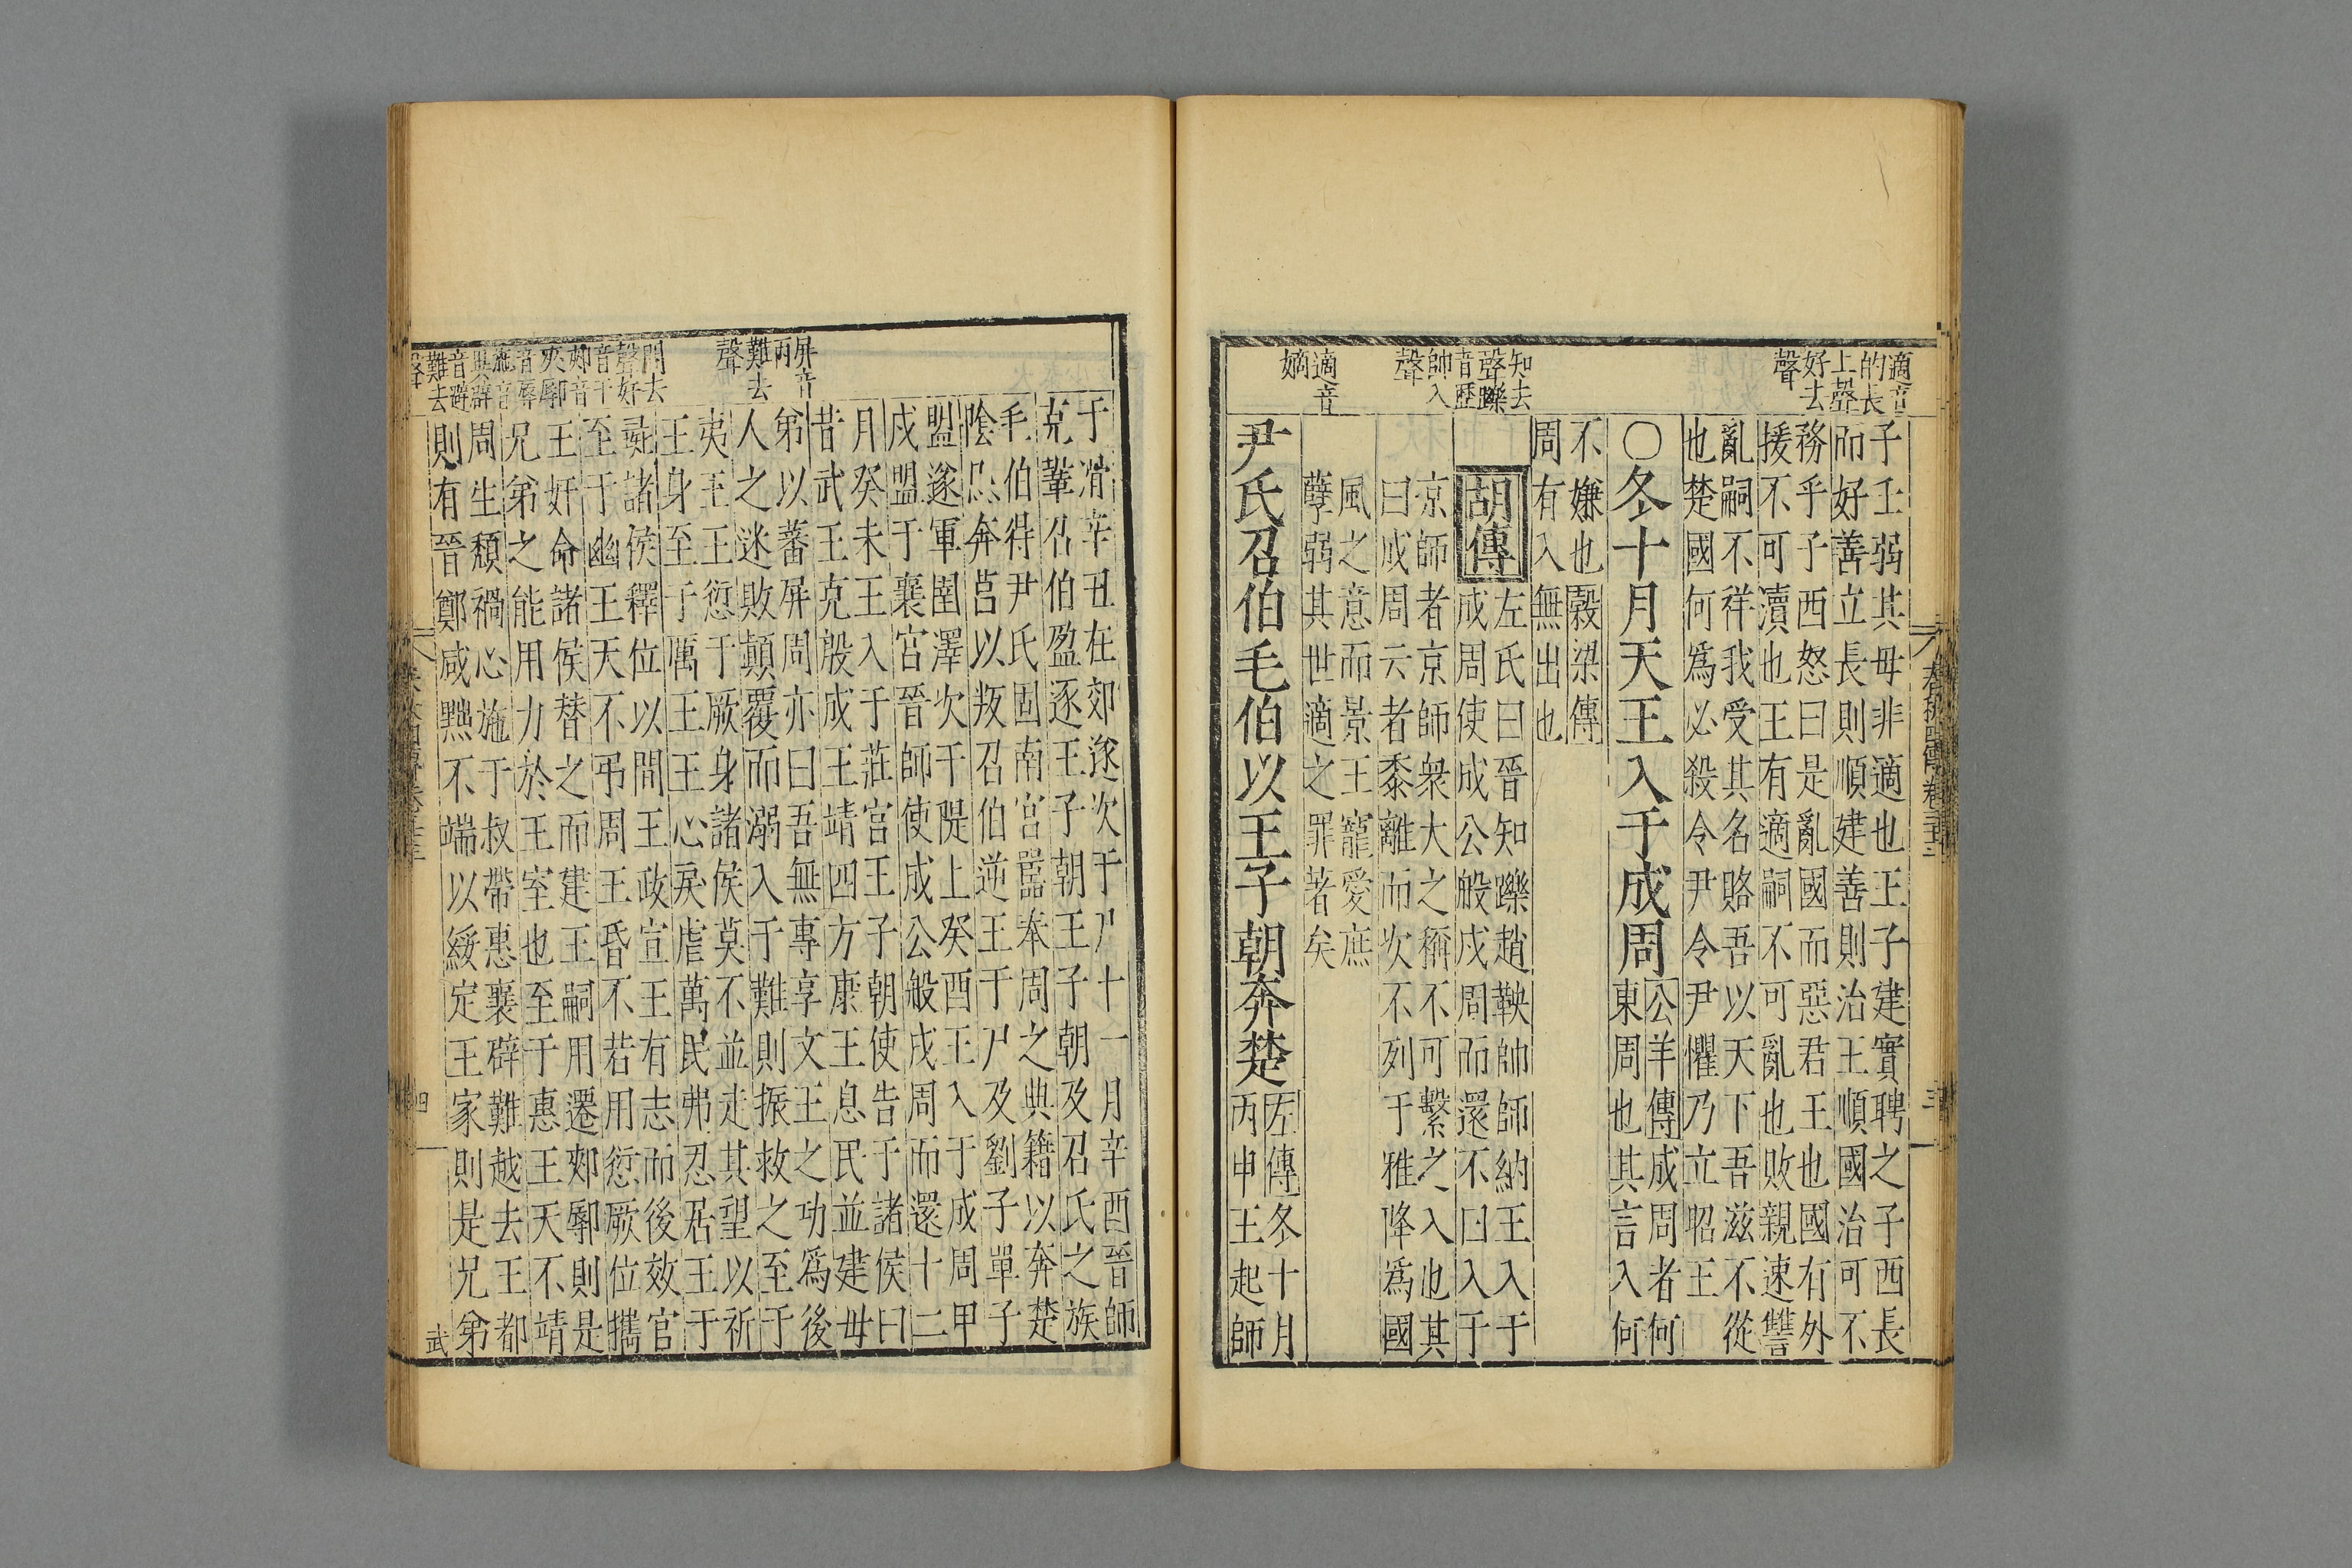 適音
的長
上聲
好去
聲
知去
聲躒
音歷
帥入
聲
適音
嫡
子壬弱其母非適也王子建實聘之子西長
而好善立長則順建善則治王順國治可不
務乎子西怒曰是亂國而惡君王也國有外
援不可瀆也王有適嗣不可亂也敗親速讐
亂嗣不祥我受其名賂吾以天下吾滋不從
也楚國何爲必殺令尹令尹懼乃立昭王
〇冬十月天王入于成周
公羊傳成周者何
東周也其言入何
不嫌也穀梁傳
周有入無出也
胡傳
左氏曰晉知躒趙鞅帥師納王入于
成周使成公般戍周而還不曰入于
京師者京師衆大之稱不可繫之入也其
曰成周云者黍離而次不列于雅降爲國
風之意而景王寵愛庶
孽弱其世適之罪著矣
尹氏召伯毛伯以王子朝奔楚
左傳冬十月
丙申王起師
屏音
丙
難去
聲
間去
聲好
音干
郟音
夾鄏
音辱
施音
異辟
音避
難去
聲
于滑辛丑在郊遂次于尸十一月辛酉晉師
克鞏召伯盈逐王子朝王子朝及召氏之族
毛伯得尹氏固南宮嚚奉周之典籍以奔楚
陰忌奔莒以叛召伯逆王于尸及劉子單子
盟遂軍圉澤次于隄上癸酉王入于成周甲
戌盟于襄宮晉師使成公般戍周而還十二
月癸未王入于莊宮王子朝使告于諸侯曰
昔武王克殷成王靖四方康王息民並建母
弟以蕃屏周亦曰吾無專享文王之功爲後
人之迷敗顛覆而溺入于難則振救之至于
夷王王愆于厥身諸侯莫不並走其望以祈
王身至于厲王王心戾虐萬民弗忍居王于
彘諸侯釋位以間王政宣王有志而後效官
至于幽王天不弔周王昏不若用愆厥位攜
王奸命諸侯替之而建王嗣用遷郟鄏則是
兄弟之能用力於王室也至于惠王天不靖
周生頹禍心施于叔帶惠襄辟難越去王都
則有晉鄭咸黜不端以綏定王家則是兄弟
武
春秋四傳卷三十三
三
四